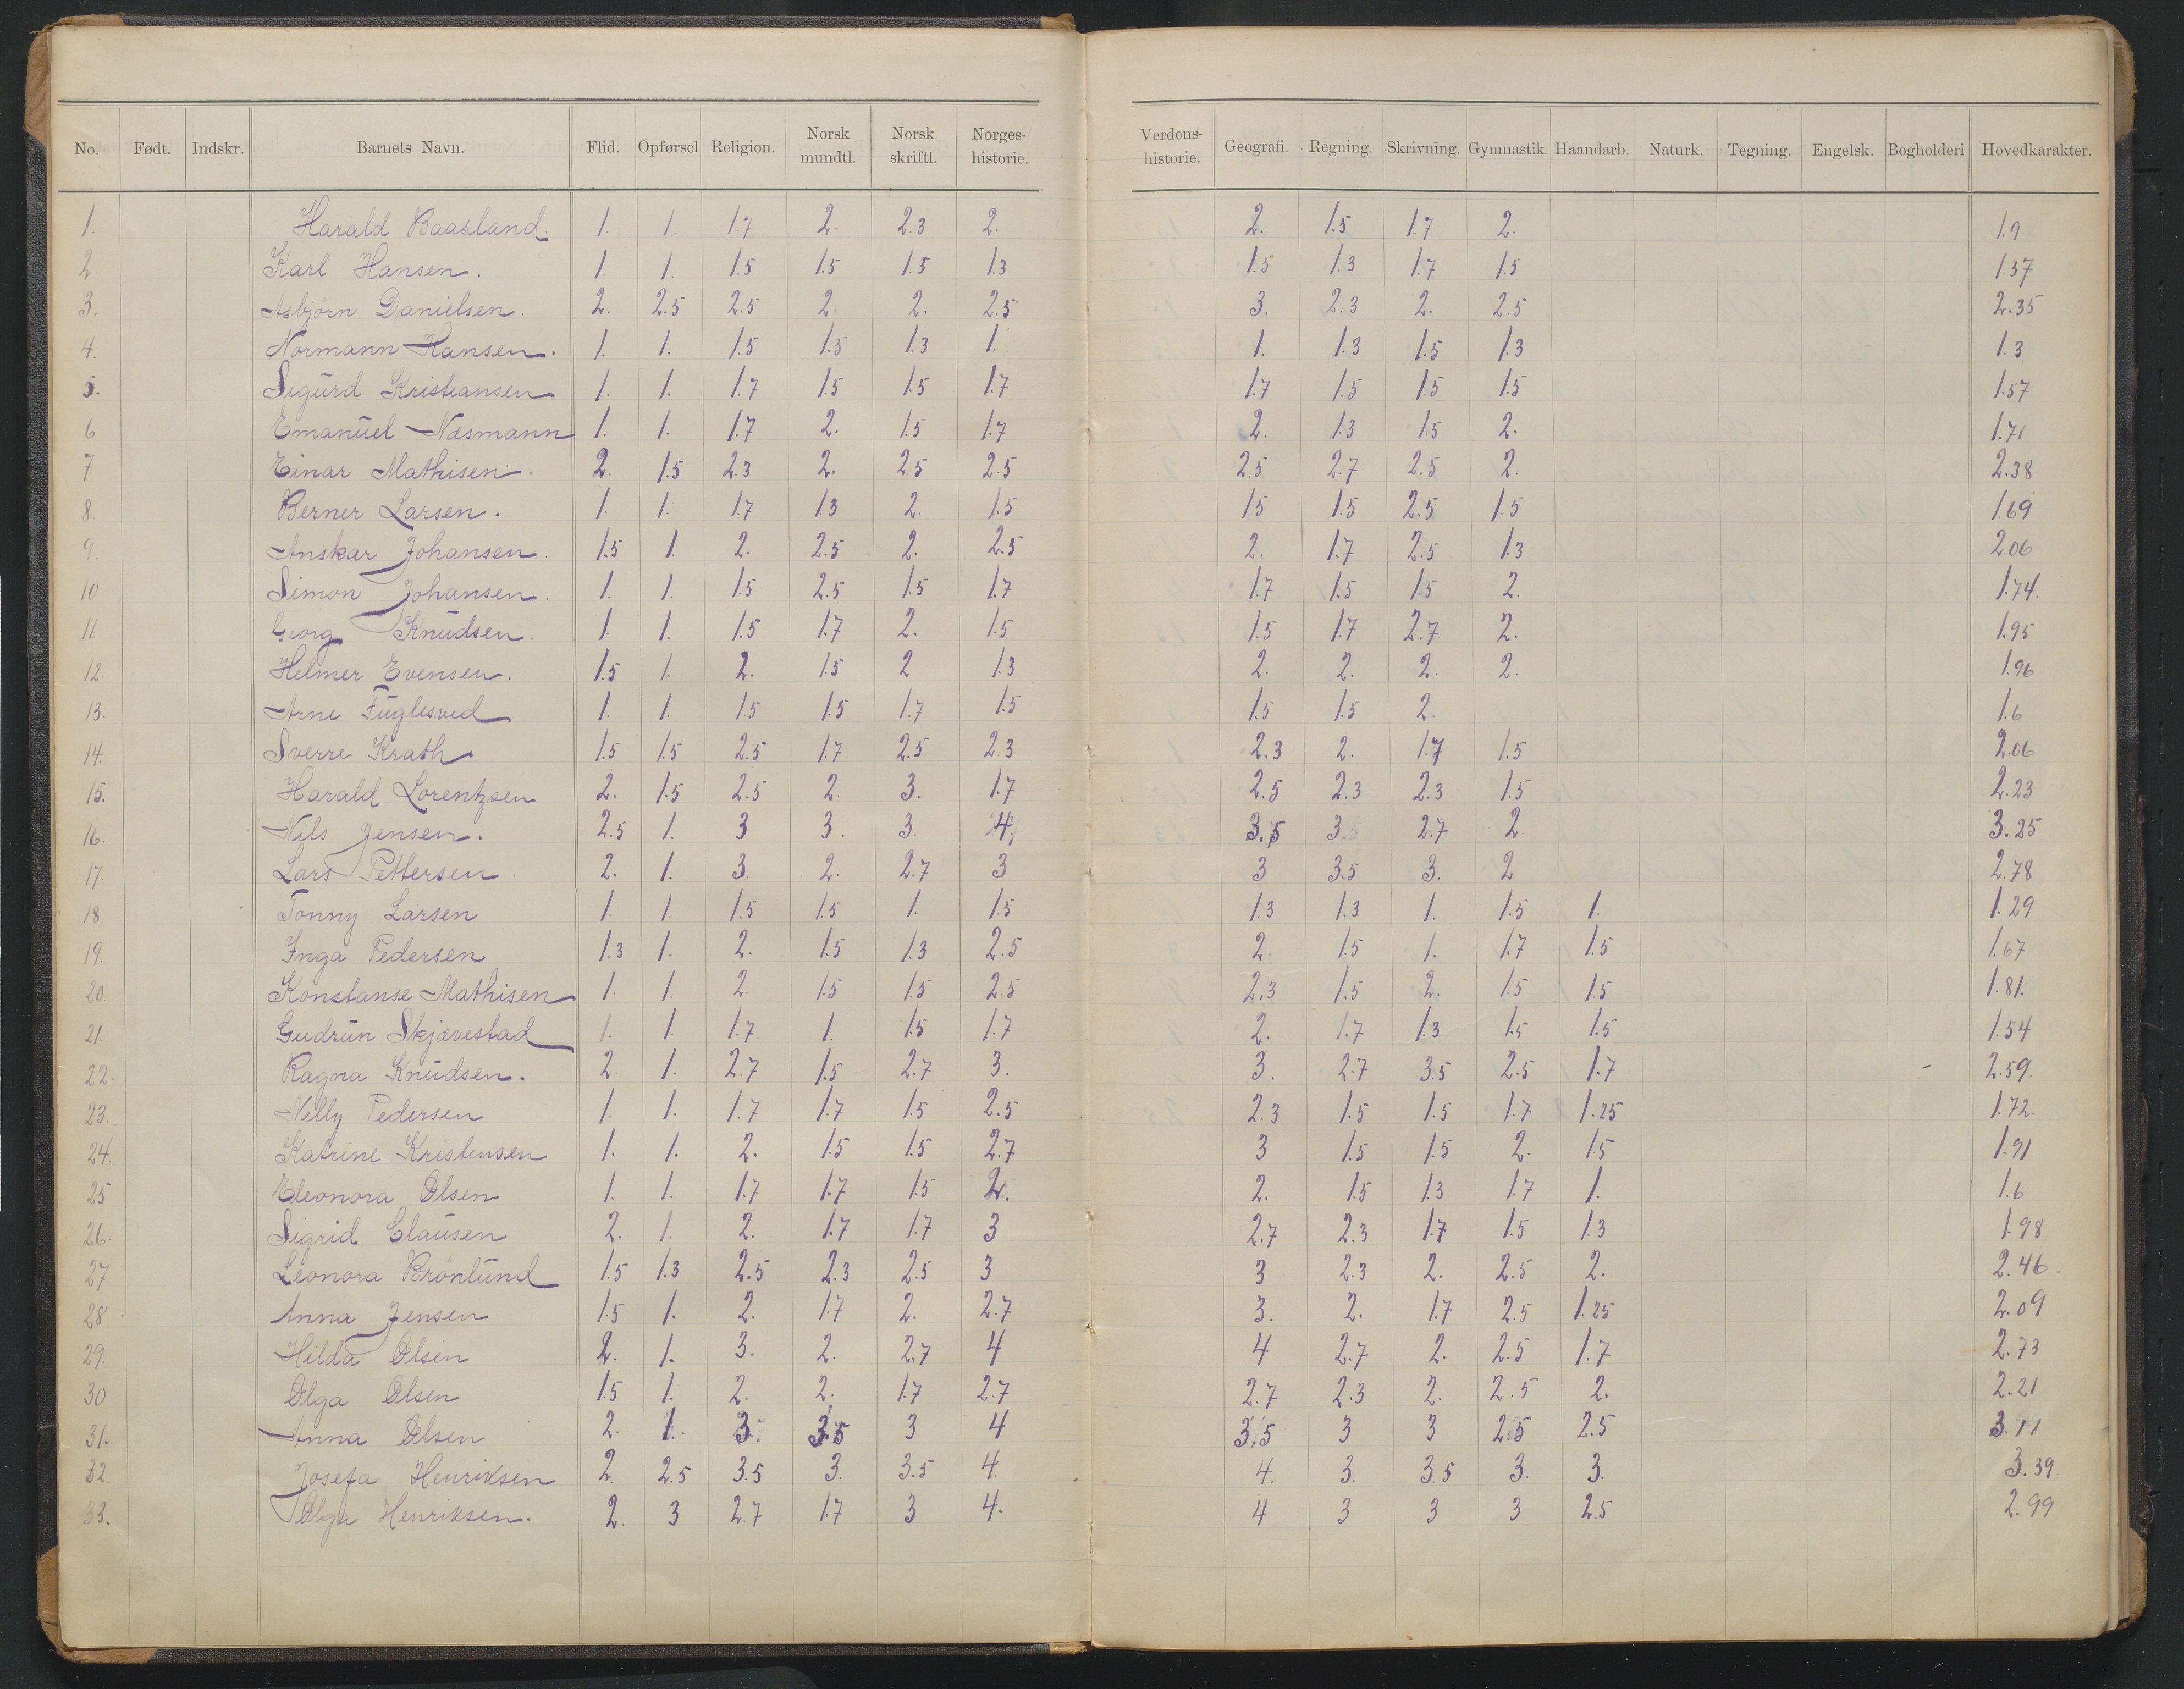 No. Født. Indskr. Barnets Navn. Flid. Opførsel Religion. Norsk mundtl. Norsk skriftl. Norges-historie. Verdens-historie. Geografi. Regning. Skrivning. Gymnastik. Haandarb. Naturk. Tegning. Engelsk. Bogholderi Hovedkarakter.
1. Harald Baasland. 1. 1. 1.7 2. 2.3 2. 2. 1.5 1.7 2. 1.9
2. Karl Hansen. 1. 1. 1.5 1.5 1.5 1.3 1.5 1.3 1.7 1.5 1.37
3. Asbjørn Danielsen. 2. 2.5 2.5 2. 2. 2.5 3. 2.3 2. 2.5 2.35
4. Normann Hansen. 1. 1. 1.5 1.5 1.3 1. 1. 1.3 1.5 1.3 1.3
5. Sigurd Kristiansen 1. 1. 1.7 1.5 1.5 1.7 1.7 1.5 1.5 1.5 1.57
6 Emanuel Næsmann 1. 1. 1.7 2. 1.5 1.7 2. 1.3 1.5 2. 1.71
7 Einar Mathisen. 2. 1.5 2.3 2. 2.5 2.5 2.5 2.7 2.5 2. 2.38
8 Berner Larsen. 1. 1. 1.7 1.3 2. 1.5 1.5 1.5 2.5 1.5 1.69
9. Anskar Johansen. 1.5 1. 2. 2.5 2. 2.5 2. 1.7 2.5 1.3 2.06
10 Simon Johansen. 1. 1. 1.5 2.5 1.5 1.7 1.7 1.5 1.5 2. 1.74.
11. Georg Knudsen. 1. 1. 1.5 1.7 2. 1.5 1.5 1.7 2.7 2. 1.95
12. Helmer Evensen. 1.5 1. 2. 1.5 2 1.3 2. 2. 2. 2. 1.96
13. Arne Fuglesved 1. 1. 1.5 1.5 1.7 1.5 1.5 1.5 2. 1.6
14. Sverre Krath 1.5 1.5 2.5 1.7 2.5 2.3 2.3 2. 1.7 1.5 2.06
15. Harald Lorentzsen 2. 1.5 2.5 2. 3. 1.7 2.5 2.3 2.3 1.5 2.23
16. Nils Jensen. 2.5 1. 3 3. 3. 4, 3.5 3.5 2.7 2. 3.25
17. Lars Pettersen. 2. 1. 3. 2. 2.7 3 3 3.5 3. 2 2.78
18 Tonny Larsen 1. 1. 1.5 1.5 1. 1.5 1.3 1.3 1. 1.5 1. 1.29
19. Inga Pedersen 1.3 1. 2. 1.5 1.3 2.5 2. 1.5 1. 1.7 1.5 1.67
20. Konstanse Mathisen 1. 1. 2. 1.5 1.5 2.5 2.3 1.5 2. 1.5 1.5 1.81.
21. Gudrun Skjævestad 1. 1. 1.7 1. 1.5 1.7 2. 1.7 1.3 1.5 1.5 1.54
22. Ragna Knudsen. 2. 1. 2.7 1.5 2.7 3. 3. 2.7 3.5 2.5 1.7 2.59.
23. Nelly Pedersen 1. 1. 1.7 1.7 1.5 2.5 2.3 1.5 1.5 1.7 1.25 1.72.
24. Katrine Kristensen 1. 1. 2. 1.5 1.5 2.7 3 1.5 1.5 2. 1.5 1.91
25 Eleonora Olsen 1. 1. 1.7 1.7 1.5 2. 2. 1.5 1.3 1.7 1. 1.6
26. Sigrid Clausen 2. 1. 2. 1.7 1.7 3 2.7 2.3 1.7 1.5 1.3 1.98
27. Leonora Brönlund 1.5 1.3 2.5 2.3 2.5 3 3 2.3 2. 2.5 2. 2.46.
28 Anna Jensen 1.5 1. 2. 1.7 2. 2.7 3. 2. 1.7 2.5 1.25 2.09
29. Hilda Olsen 2. 1. 3. 2. 2.7 4 4 2.7 2. 2.5 1.7 2.73
30 Olga Olsen 1.5 1. 2. 2. 1.7 2.7 2.7 2.3 2. 2.5 2. 2.21
31. Anna Olsen 2. 1. 3. 3.5 3 4 3.5 3 3 2.5 2.5 3.11
32. Josefa Henriksen 2. 2.5 3.5 3. 3.5 4. 4. 3. 3.5 3. 3. 3.39.
33. Olga Henriksen. 2. 3 2.7 1.7 3 4. 4 3 3 3 2.5 2.99